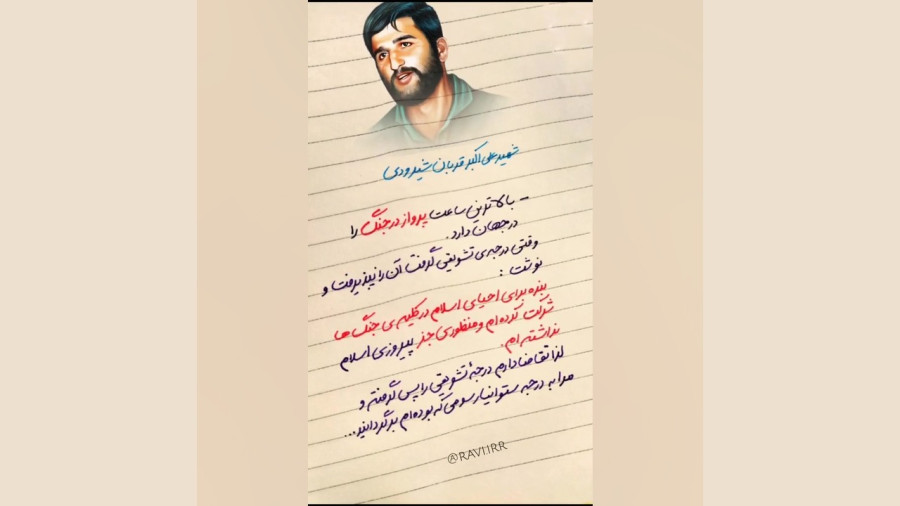 شهید علی اکبر قربان شیرودی
- بالاترین ساعت پرواز در جنگ را
در جهان دارد.
وقتی درجه‌ی تشویقی گرفت آن را نپذیرفت و
نوشت :
بنده برای احیای اسلام در کلیه‌ی جنگ ها
شرکت کرده ام و منظوری جز پیروزی اسلام
نداشته ام.
لذا تقاضا دارم درجهٔ تشویقی را پس گرفته و
مرا به درجه ستوانیار سومی که بوده‌ام برگردانید...
@RAVI.IRR